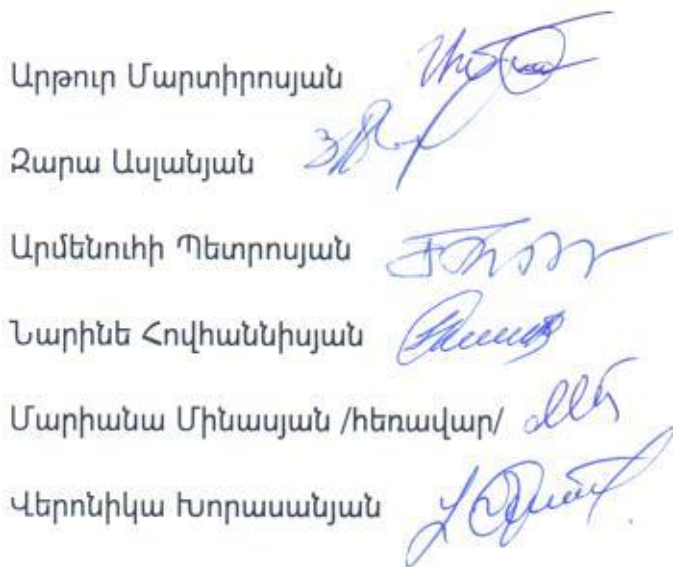 Արթուր Մարտիրոսյան
Զարա Ասլանյան
Արմենուհի Պետրոսյան
Նարինե Հովհաննիսյան
Մարիանա Մինասյան /հեռավար/
Վերոնիկա Խորասանյան